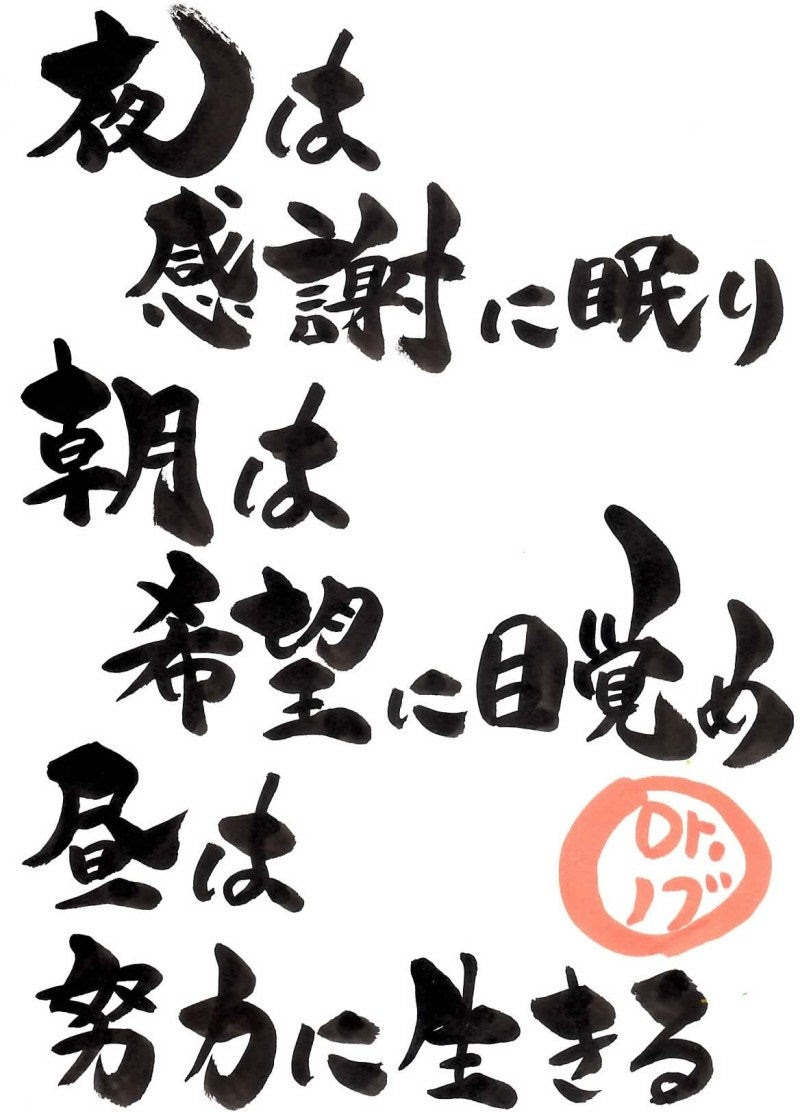 夜は
感謝に眠り
朝は
希望に目覚め
昼は
Dr.
ノブ
努力に生きる